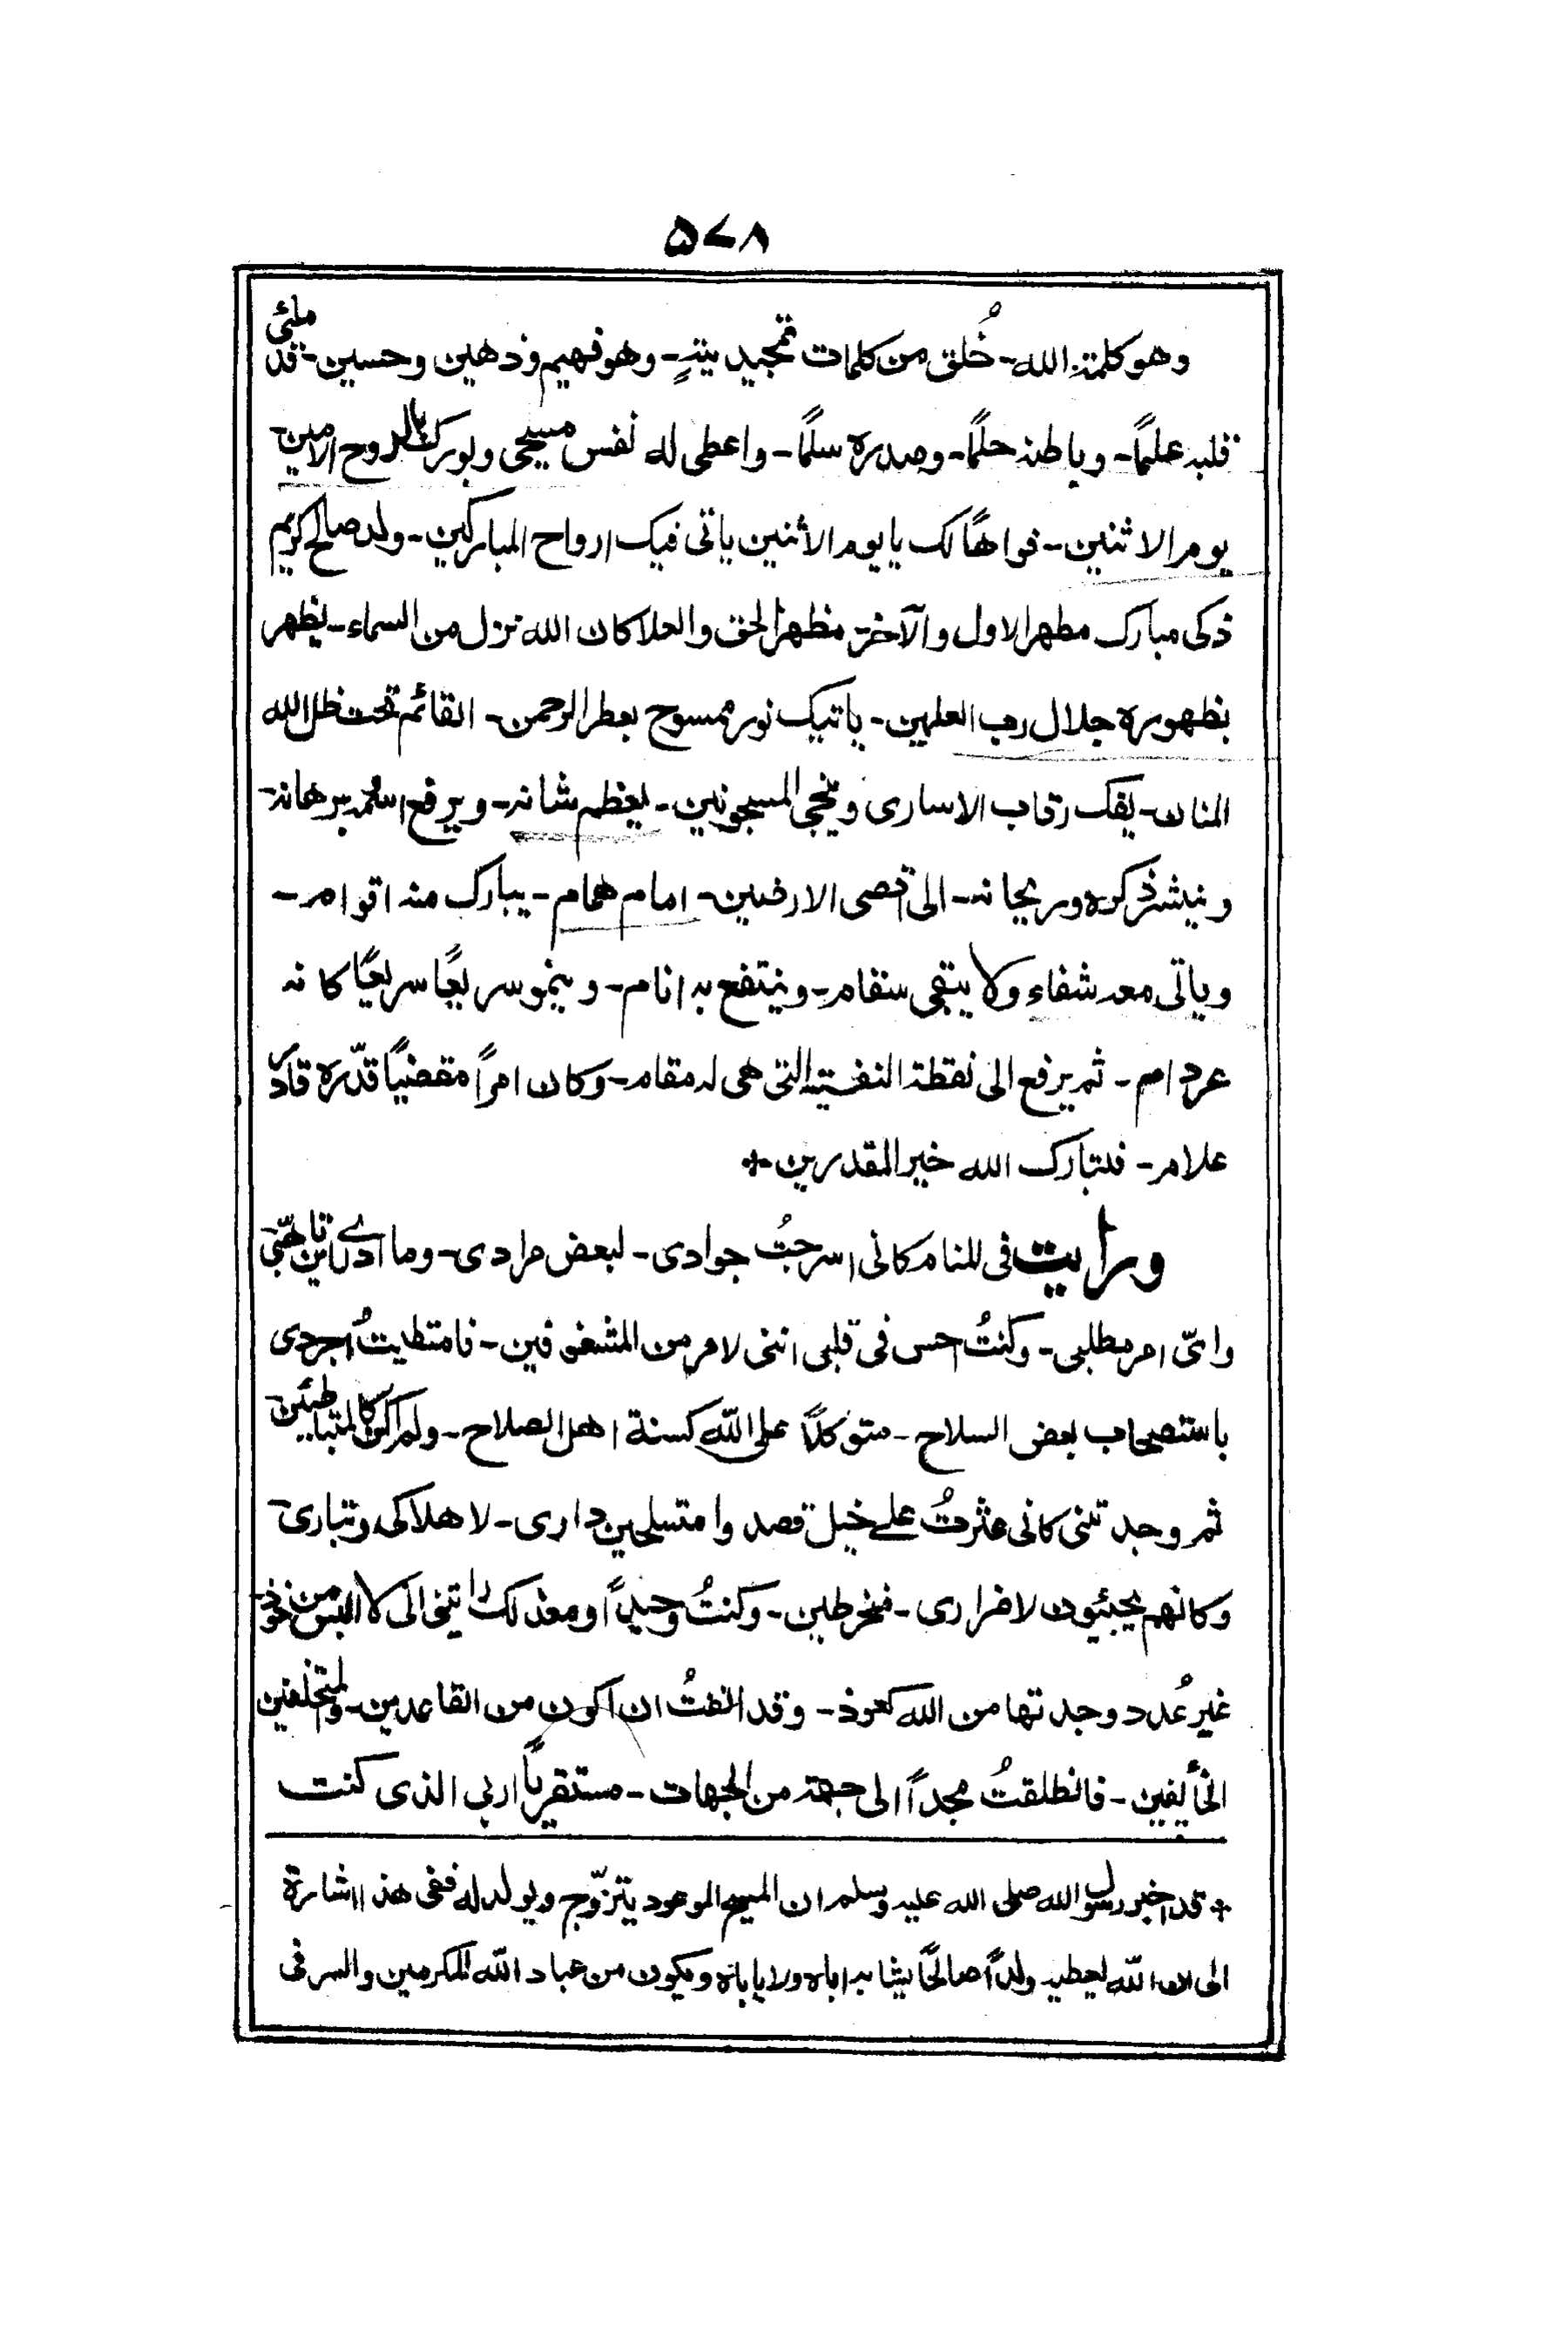 ۵۷۸
وهو كلمة الله۔ خُلق من كلمات تمجيديةٍ۔ وهو فهيم وذهين وحسين۔ قد ملئ
قلبه علمًا۔ وباطنه حلمًا۔ وصدره سلمًا۔ واعطى له نفس مسيحى وبورك بالروح الامين۔
يوم الاثنين۔ فواهًا لك يا يوم الأثنين ياتى فيك ارواح المباركين۔ ولد صالح كريم
ذكى مبارك مظهر الاول والآخر۔ مظهر الحق والعلا كان الله نزل من السماء۔ يظهر
بظهوره جلال رب العلمين۔ ياتيك نور ممسوح بعطر الرحمن۔ القائم تحت ظل الله
المنان۔ يفك رقاب الاسارى وينجى المسجونين۔ يعظم شانه۔ ويرفع اسمه وبرهانه۔
وينشر ذكره وريحانه۔ الى اقصى الارضين۔ امام همام۔ يبارك منه اقوام۔
وياتى معه شفاء ولا يبقى سقام۔ وينتفع به انام۔ وينمو سريعًا سريعًا كانه
عردام۔ ثم يرفع الى نقطة النفسية التى هى له مقام۔ وكان امرًا مقضيًا قدّره قادر
علام۔ فتبارك الله خير المقدرين +
ورأيت فى المنام كانى اسرجتُ جوادى۔ لبعض مرادى۔ وما ادرى اين تأهّبى
واىّ امر مطلبى۔ وكنتُ احس فى قلبى اننى لامر من المشغوفين۔ فامتطيتُ اجردى
باستصحاب بعض السلاح۔ متوكلًا على الله كسنة اهل الصلاح۔ ولم اكن كالمتباطئين۔
ثم وجدتنى كانى عثرتُ على خيل قصدوا متسلحين دارى۔ لاهلاكى وتبارى۔
وكانهم يجيئون لاضرارى۔ منخرطين۔ وكنتُ وحيدًا ومع ذلك رايتنى انى لا البس من خوذ
غير عُدد وجدتها من الله كعوذ۔ وقد انفتُ ان اكون من القاعدين۔ والمتخلفين
الخأيفين۔ فانطلقتُ مجدًا الى جهة من الجهات۔ مستقريًا اربى الذى كنت
+ قد اخبر رسول الله صلى الله عليه وسلم ان المسيح الموعود يتزوّج ويولد له ففى هذا اشارة
الى ان الله يعطيه ولدًا صالحًا يشابه اباه ولا ياباه ويكون من عباد الله المكرمين والسر فى